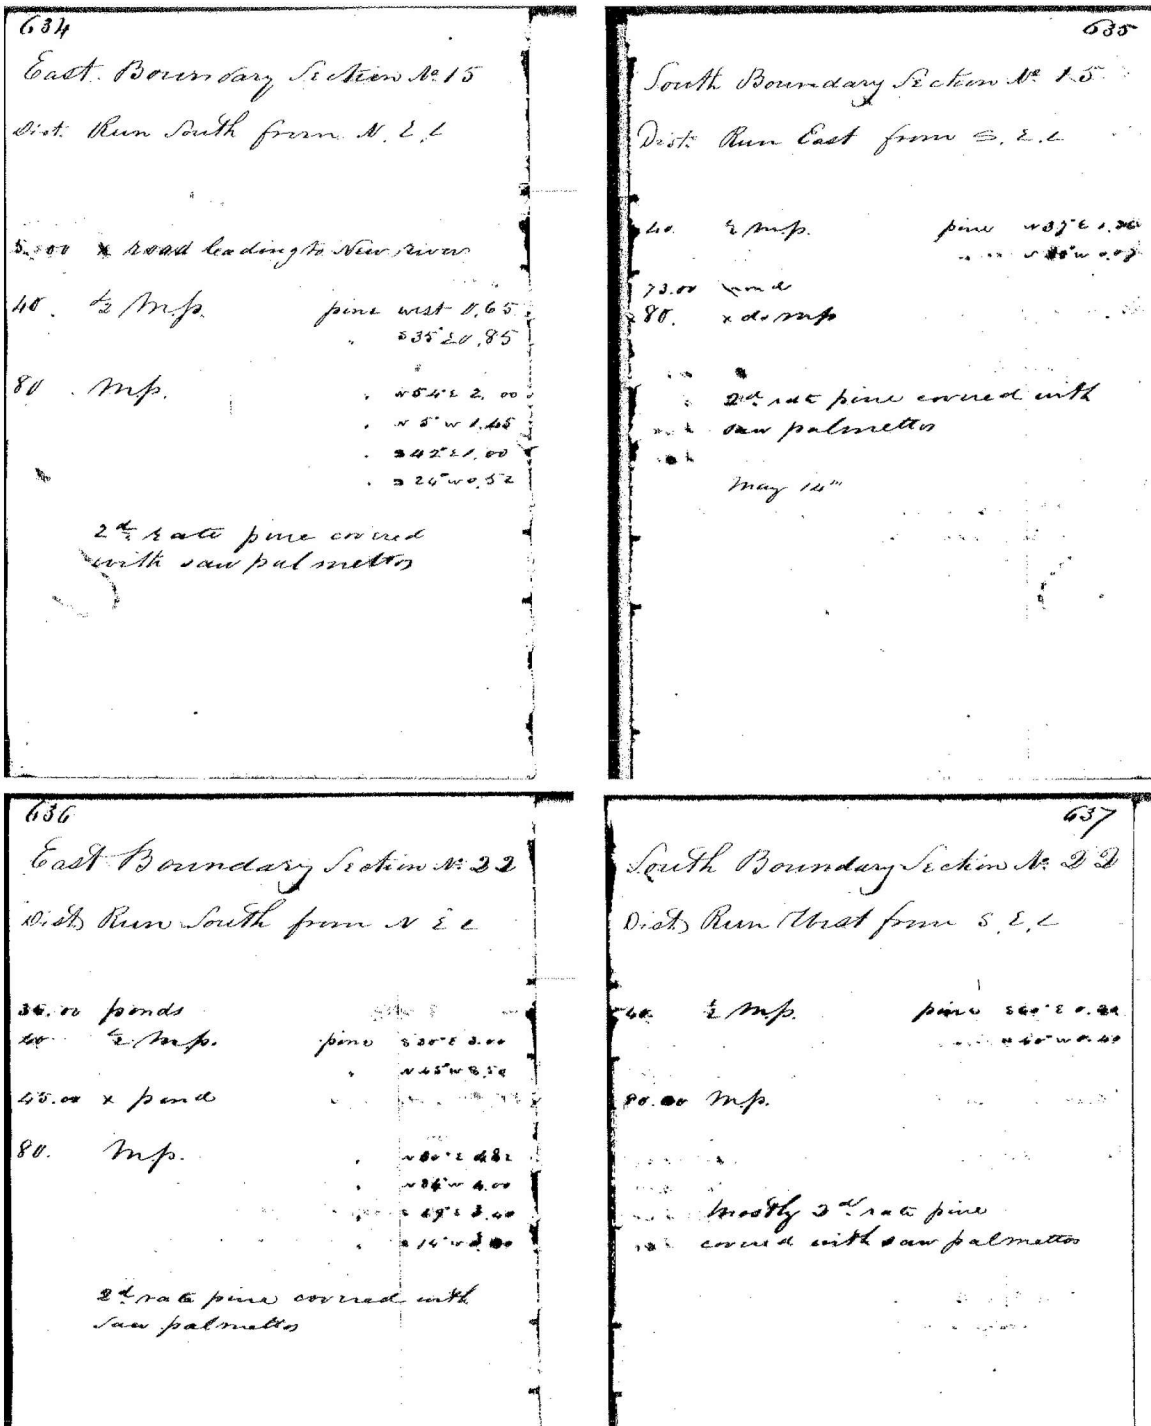 634
East Boundary Section No 15
Dist. Run South from N. E. C
5.00 x road leading to New river
40. ½ M.p. pine west 0.65
" S 35° E 0.85
80. M.p. " N 54° E 2.00
" N 5° W 1.45
" S 42° E 1.00
" S 24° W 0.52
2d rate pine covered
with saw palmettos
635
South Boundary Section No 15
Dist. Run East from S. E. C
40. ½ M.p. pine N 37° E
73.00
80. M.p
2d rate pine covered with
saw palmettos
May 14th
636
East Boundary Section No 22
Dist. Run South from N E C
ponds
40 ½ M.p. pine S 30° E 3.00
N 45° W
45.00 x pond
80. M.p.
N 84° W 4.00
2d rate pine covered with
saw palmettos
637
South Boundary Section No 22
Dist. Run West from S. E. C
40 ½ M.p. pine S 60° E
80.00 M.p.
Mostly 3d rate pine
covered with saw palmettos